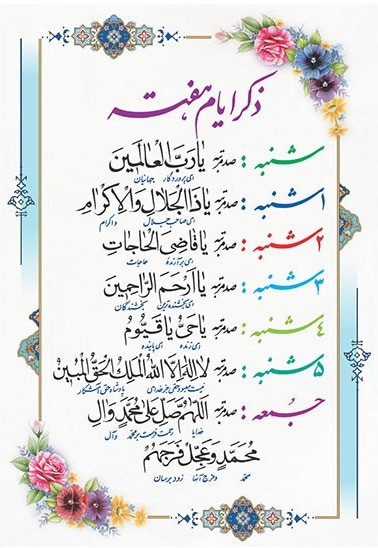 ذکر ایام هفته
شنبه : صد مرتبه یا رَبَّ الْعالَمینَ
ای پروردگار جهانیان
۱شنبه : صد مرتبه یا ذَا الْجَلالِ وَالْاِکْرامِ
ای صاحب جلال و اکرام
۲شنبه : صد مرتبه یا قاضِیَ الْحاجاتِ
ای برآرنده حاجات
۳شنبه : صد مرتبه یا اَرْحَمَ الرّاحِمینَ
ای بخشنده ترین بخشندگان
۴شنبه : صد مرتبه یا حَیُّ یا قَیُّومُ
ای زنده ای پاینده
۵شنبه : صد مرتبه لا اِلهَ اِلَّا اللهُ الْمَلِکُ الْحَقُّ الْمُبینُ
نیست معبود بحق جز خدای پادشاه حق آشکار
جمعه : صد مرتبه اَللّهُمَّ صَلِّ عَلی مُحَمَّدٍ وَآلِ
خدایا رحمت فرست بر محمد و آل
مُحَمَّدٍ وَعَجِّلْ فَرَجَهُمْ
محمد و فرج آنها زود برسان